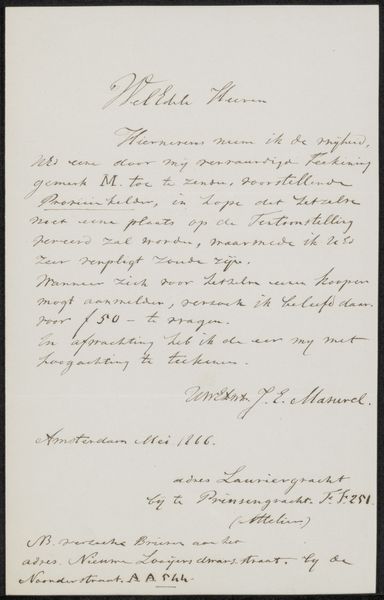 WelEdele Heeren
Hiernevens neem ik de vrijheid,
UEd eene door mij vervaardigde Teekening
gemerk M. toe te zenden, voorstellende
in hope dat hetzelve
met eene plaats op de Tentoonstelling
vereerd zal worden, waarmede ik UEd
zeer verpligt zoude zijn.
Wanneer zich voor hetzelve eenen kooper
mogt aanmelden, verzoek ik beleefd daar-
voor f50 - te vragen.
En afwachting heb ik de eer mij met
hoogachting te teekenen.
UwEdwdr J. E. Masurel.
Amsterdam Mei 1866.
adres Lauriergracht
bij de Prinsengracht. F. F. 251.
(Atelier)
NB. verzoeke Brieven aan het
adres. Nieuwe Looijersdwarsstraat. bij de
Noorderstraat. A A 544.